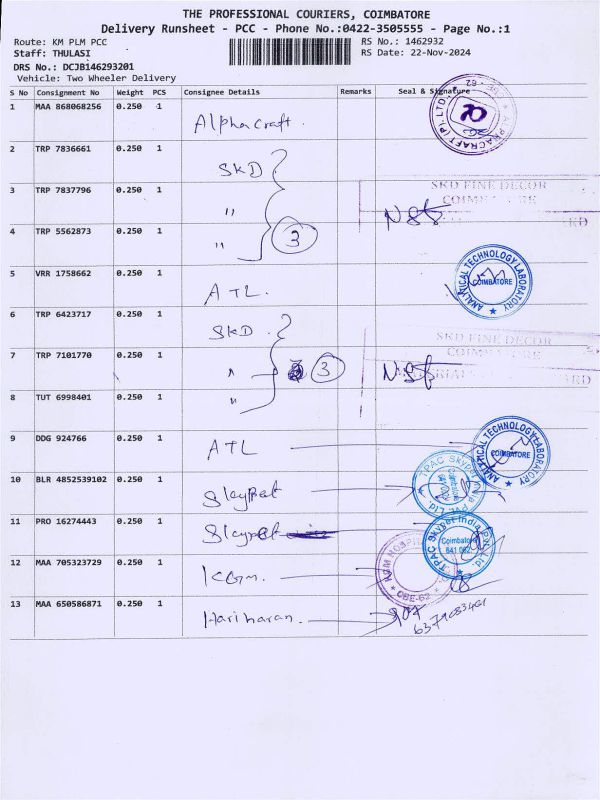 THE PROFESSIONAL COURIERS, COIMBATORE
Delivery Runsheet - PCC - Phone No.:0422-3505555 - Page No.:1
Route: KM PLM PCC
Staff: THULASI
DRS No.: DCJB146293201
Vehicle: Two Wheeler Delivery
RS No.: 1462932
RS Date: 22-Nov-2024
S No Consignment No Weight PCS Consignee Details Remarks Seal & Signature
1 MAA 868068256 0.250 1 Alphacraft.
2 TRP 7836661 0.250 1 SKD
3 TRP 7837796 0.250 1 "
SKD FINE DECOR
4 TRP 5562873 0.250 1 " 3
5 VRR 1758662 0.250 1 ATL.
ANALYTICAL TECHNOLOGY LABORATORY
COIMBATORE
6 TRP 6423717 0.250 1 SKD.
SKD FINE DECOR
7 TRP 7101770 0.250 1 " 3
8 TUT 6998401 0.250 1 "
9 DDG 924766 0.250 1 ATL
ANALYTICAL TECHNOLOGY LABORATORY
COIMBATORE
10 BLR 4852539102 0.250 1 Skypet
11 PRO 16274443 0.250 1 Skypet
TPAC Skypet India Pvt. Ltd.
Coimbatore
641 062
12 MAA 705323729 0.250 1 KGM.
13 MAA 650586871 0.250 1 Hariharan.
6379083461